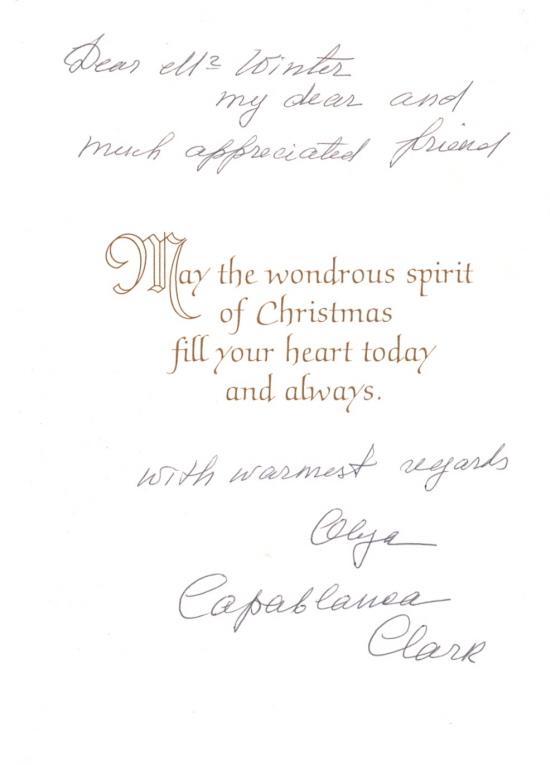 Dear Mr Winter
my dear and
much appreciated friend
May the wondrous spirit
of Christmas
fill your heart today
and always.
with warmest regards
Olga
Capablanca
Clark